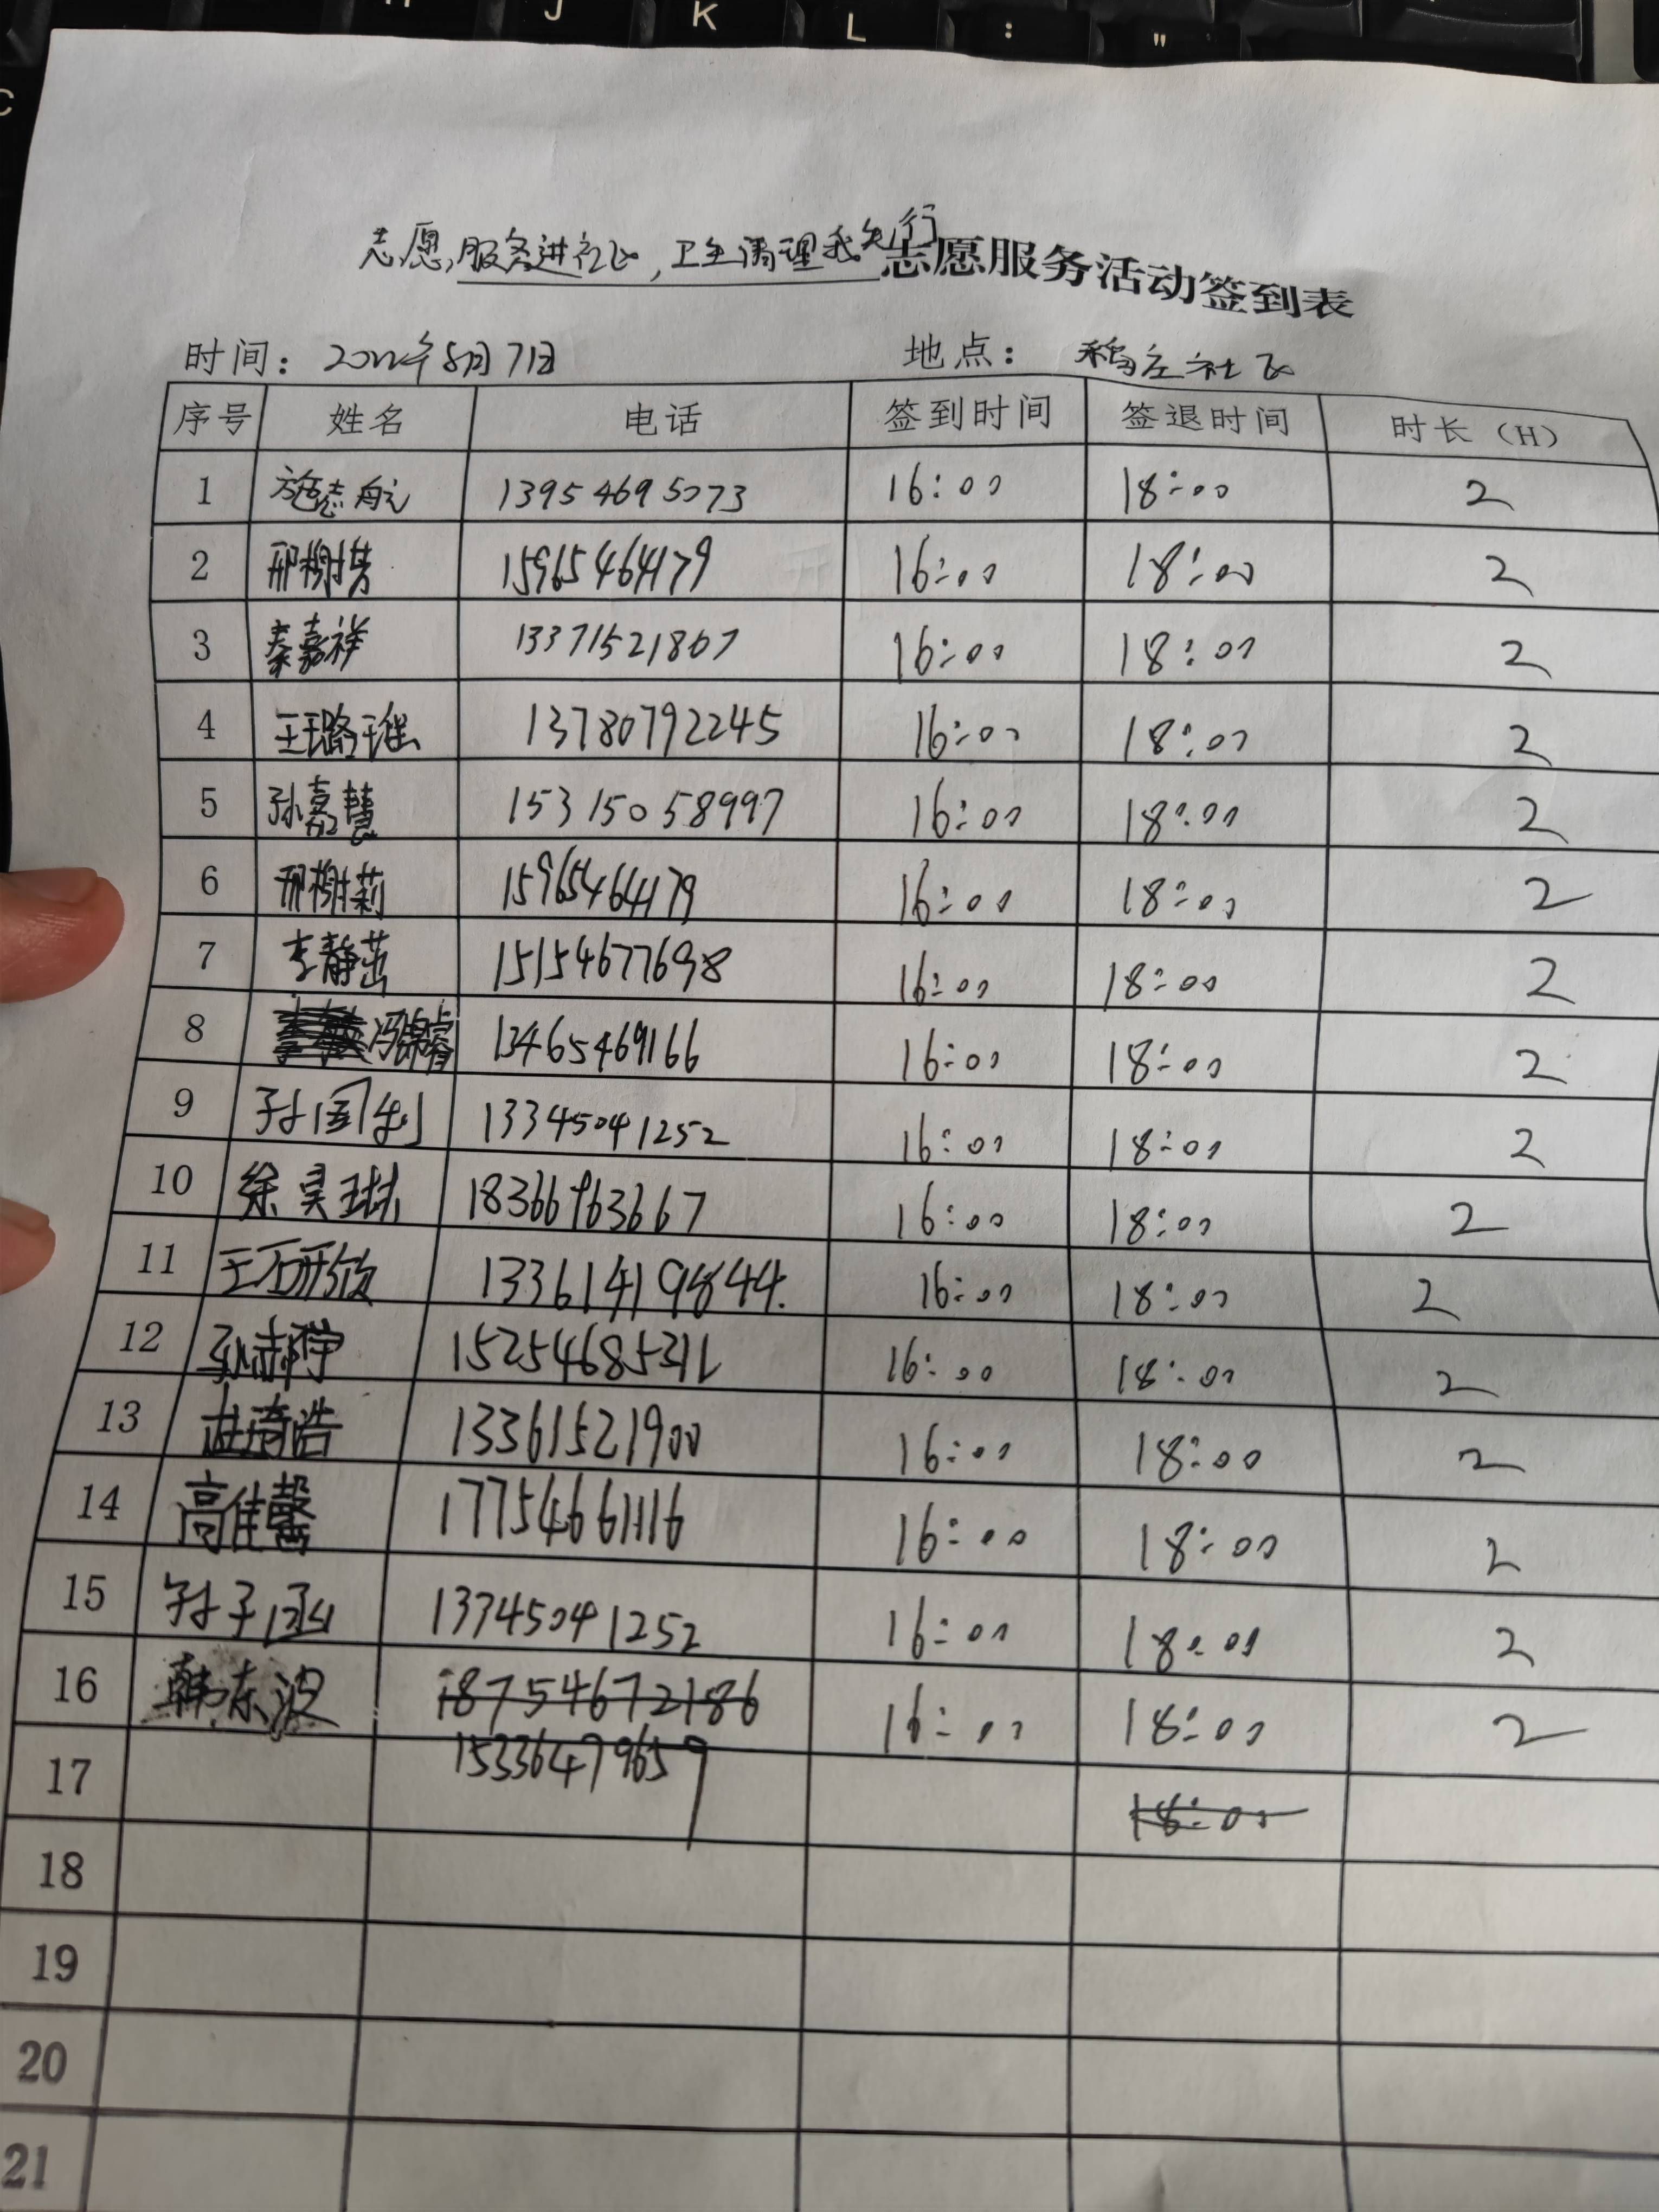 志愿服务进社区,卫生清理我先行志愿服务活动签到表
时间: 2022年8月7日 地点: 社区
序号 姓名 电话 签到时间 签退时间 时长(H)
1 施志航 13954695073 16:00 18:00 2
2 邢树芳 15965464179 16:00 18:00 2
3 秦嘉祥 13371521807 16:00 18:00 2
4 王璐瑶 13780792245 16:00 18:00 2
5 孙嘉慧 15315058997 16:00 18:00 2
6 邢树莉 15965464179 16:00 18:00 2
7 李静茹 15154677698 16:00 18:00 2
8 冯锦睿 13465469166 16:00 18:00 2
9 孙国利 13345041252 16:00 18:00 2
10 徐昊琳 18366963667 16:00 18:00 2
11 王研欣 133614198644. 16:00 18:00 2
12 孙赫宇 15254685311 16:00 18:00 2
13 杜琦浩 13361521900 16:00 18:00 2
14 高佳馨 17754661116 16:00 18:00 2
15 孙子涵 13345041252 16:00 18:00 2
16 韩东波 18754672186 16:00 18:00 2
17 15336479659 18:00
18
19
20
21
J
K
L
:
"
C